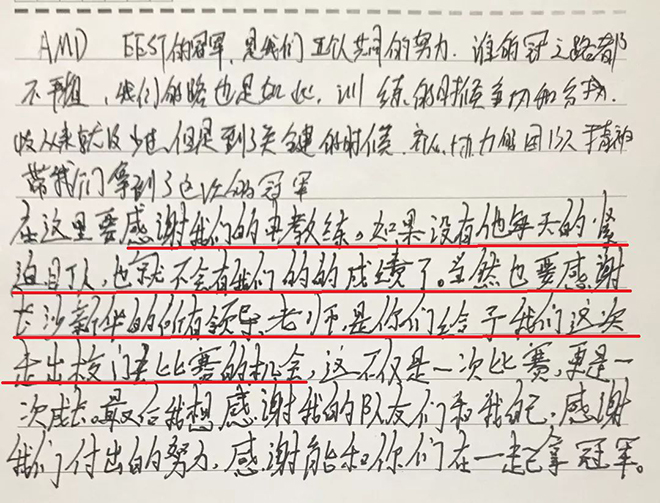 AMD EEST的冠军,是我们五个人共同的努力.谁的冠军之路都
不平坦,我们的路也是如此,训练的时候争切和分歧.
从来就没少过,但是到了关键的时候,齐心协力的团队精神
带我们拿到了这次的冠军
在这里要感谢我们的冉教练。如果没有他每天的紧
迫盯人,也就不会有我们的的成绩了。当然也要感谢
长沙新华的所有领导、老师,是你们给予我们这次
走出校门去比赛的机会,这不仅是一次比赛,更是一
次成长。最后我想感谢我的队友们和我自己,感谢
我们付出的努力,感谢能和你们在一起拿冠军。